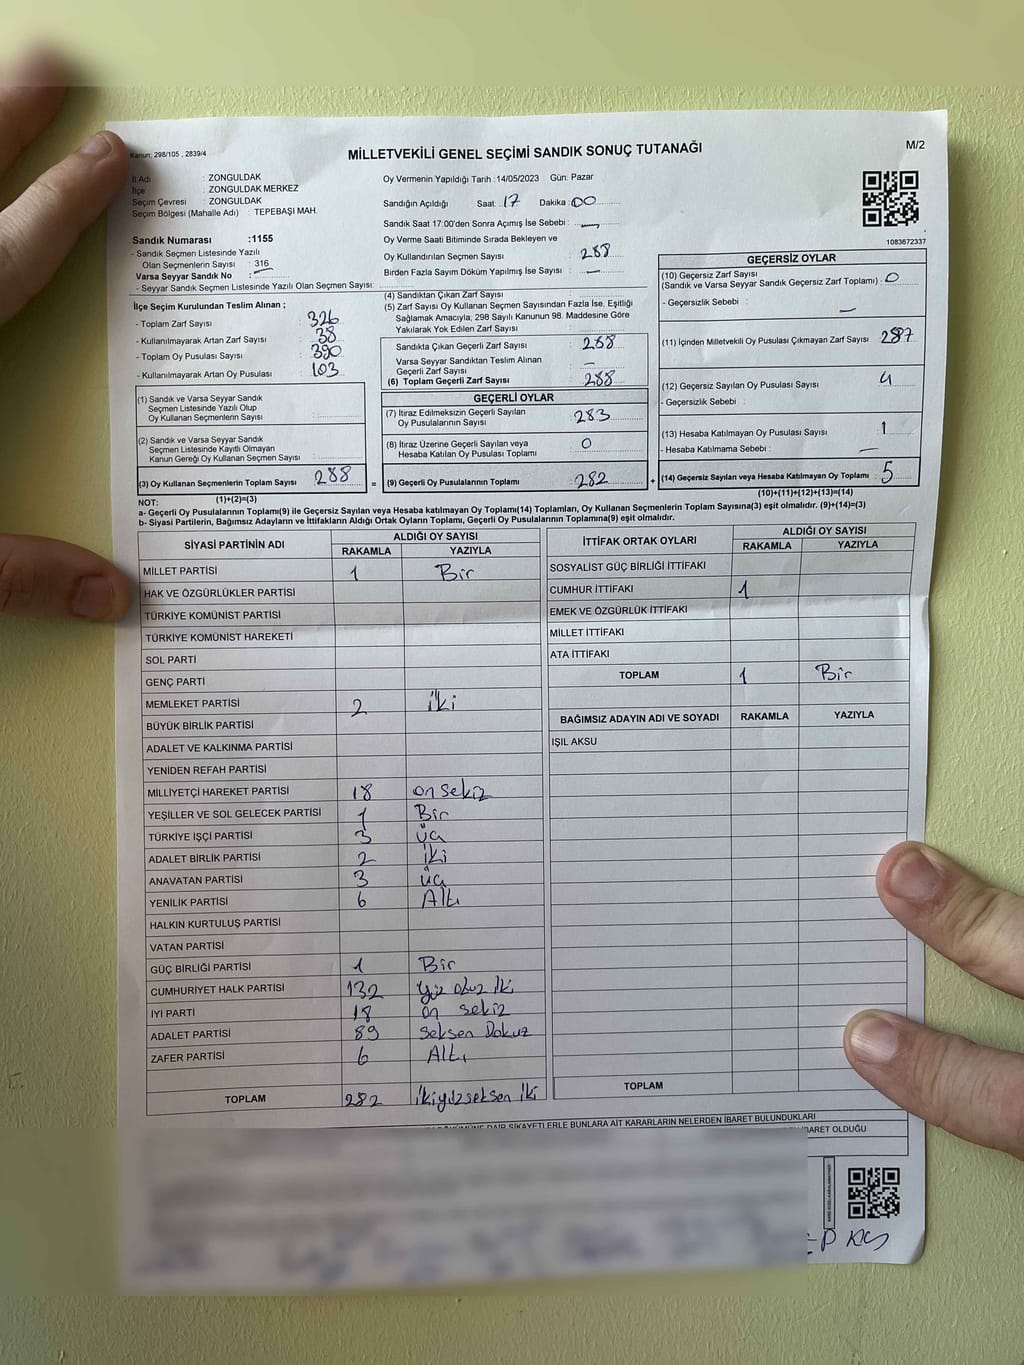 Kanun; 298/105 , 2839/4
MİLLETVEKİLİ GENEL SEÇİMİ SANDIK SONUÇ TUTANAĞI
M/2
İl Adı : ZONGULDAK
İlçe : ZONGULDAK MERKEZ
Seçim Çevresi : ZONGULDAK
Seçim Bölgesi (Mahalle Adı) : TEPEBAŞI MAH.
Sandık Numarası :1155
- Sandık Seçmen Listesinde Yazılı
Olan Seçmenlerin Sayısı : 316
Varsa Seyyar Sandık No :
- Seyyar Sandık Seçmen Listesinde Yazılı Olan Seçmen Sayısı:
Oy Vermenin Yapıldığı Tarih :14/05/2023 Gün: Pazar
Sandığın Açıldığı Saat: 17 Dakika: 00
Sandık Saat 17:00'den Sonra Açımış İse Sebebi : —
Oy Verme Saati Bitiminde Sırada Bekleyen ve
Oy Kullandırılan Seçmen Sayısı : 288
Birden Fazla Sayım Döküm Yapılmış İse Sayısı : —
1083672337
İlçe Seçim Kurulundan Teslim Alınan ;
- Toplam Zarf Sayısı : 326
- Kullanılmayarak Artan Zarf Sayısı : 38
- Toplam Oy Pusulası Sayısı : 390
- Kullanılmayarak Artan Oy Pusulası : 103
(1) Sandık ve Varsa Seyyar Sandık
Seçmen Listesinde Yazılı Olup
Oy Kullanan Seçmenlerin Sayısı :
(2) Sandık ve Varsa Seyyar Sandık
Seçmen Listesinde Kayıtlı Olmayan
Kanun Gereği Oy Kullanan Seçmen Sayısı :
(3) Oy Kullanan Seçmenlerin Toplam Sayısı : 288
(1)+(2)=(3)
(4) Sandıktan Çıkan Zarf Sayısı :
(5) Zarf Sayısı Oy Kullanan Seçmen Sayısından Fazla İse, Eşitliği
Sağlamak Amacıyla; 298 Sayılı Kanunun 98. Maddesine Göre
Yakılarak Yok Edilen Zarf Sayısı :
Sandıkta Çıkan Geçerli Zarf Sayısı : 288
Varsa Seyyar Sandıktan Teslim Alınan
Geçerli Zarf Sayısı : —
(6) Toplam Geçerli Zarf Sayısı : 288
GEÇERLİ OYLAR
(7) İtiraz Edilmeksizin Geçerli Sayılan
Oy Pusulalarının Sayısı : 283
(8) İtiraz Üzerine Geçerli Sayılan veya
Hesaba Katılan Oy Pusulası Toplamı : 0
= (9) Geçerli Oy Pusulalarının Toplamı : 282
GEÇERSİZ OYLAR
(10) Geçersiz Zarf Sayısı
(Sandık ve Varsa Seyyar Sandık Geçersiz Zarf Toplamı) : 0
- Geçersizlik Sebebi : —
(11) İçinden Milletvekili Oy Pusulası Çıkmayan Zarf Sayısı : 287
(12) Geçersiz Sayılan Oy Pusulası Sayısı : 4
- Geçersizlik Sebebi :
(13) Hesaba Katılmayan Oy Pusulası Sayısı : 1
- Hesaba Katılmama Sebebi : —
+ (14) Geçersiz Sayılan veya Hesaba Katılmayan Oy Toplamı : 5
(10)+(11)+(12)+(13)=(14)
NOT:
a- Geçerli Oy Pusulalarının Toplamı(9) ile Geçersiz Sayılan veya Hesaba katılmayan Oy Toplamı(14) Toplamları, Oy Kullanan Seçmenlerin Toplam Sayısına(3) eşit olmalıdır. (9)+(14)=(3)
b- Siyasi Partilerin, Bağımsız Adayların ve İttifakların Aldığı Ortak Oyların Toplamı, Geçerli Oy Pusulalarının Toplamına(9) eşit olmalıdır.
SİYASİ PARTİNİN ADI ALDIĞI OY SAYISI
RAKAMLA YAZIYLA
MİLLET PARTİSİ 1 Bir
HAK VE ÖZGÜRLÜKLER PARTİSİ
TÜRKİYE KOMÜNİST PARTİSİ
TÜRKİYE KOMÜNİST HAREKETİ
SOL PARTİ
GENÇ PARTİ
MEMLEKET PARTİSİ 2 iki
BÜYÜK BİRLİK PARTİSİ
ADALET VE KALKINMA PARTİSİ
YENİDEN REFAH PARTİSİ
MİLLİYETÇİ HAREKET PARTİSİ 18 on sekiz
YEŞİLLER VE SOL GELECEK PARTİSİ 1 Bir
TÜRKİYE İŞÇİ PARTİSİ 3 üç
ADALET BİRLİK PARTİSİ 2 iki
ANAVATAN PARTİSİ 3 üç
YENİLİK PARTİSİ 6 Altı
HALKIN KURTULUŞ PARTİSİ
VATAN PARTİSİ
GÜÇ BİRLİĞİ PARTİSİ 1 Bir
CUMHURİYET HALK PARTİSİ 132 Yüz otuz iki
İYİ PARTİ 18 on sekiz
ADALET PARTİSİ 89 seksen Dokuz
ZAFER PARTİSİ 6 Altı
TOPLAM 282 ikiyüzseksen iki
İTTİFAK ORTAK OYLARI ALDIĞI OY SAYISI
RAKAMLA YAZIYLA
SOSYALİST GÜÇ BİRLİĞİ İTTİFAKI
CUMHUR İTTİFAKI 1
EMEK VE ÖZGÜRLÜK İTTİFAKI
MİLLET İTTİFAKI
ATA İTTİFAKI
TOPLAM 1 Bir
BAĞIMSIZ ADAYIN ADI VE SOYADI RAKAMLA YAZIYLA
IŞIL AKSU
TOPLAM
DAİR ŞİKAYETLERLE BUNLARA AİT KARARLARIN NELERDEN İBARET BULUNDUKLARI
İBARET OLDUĞU